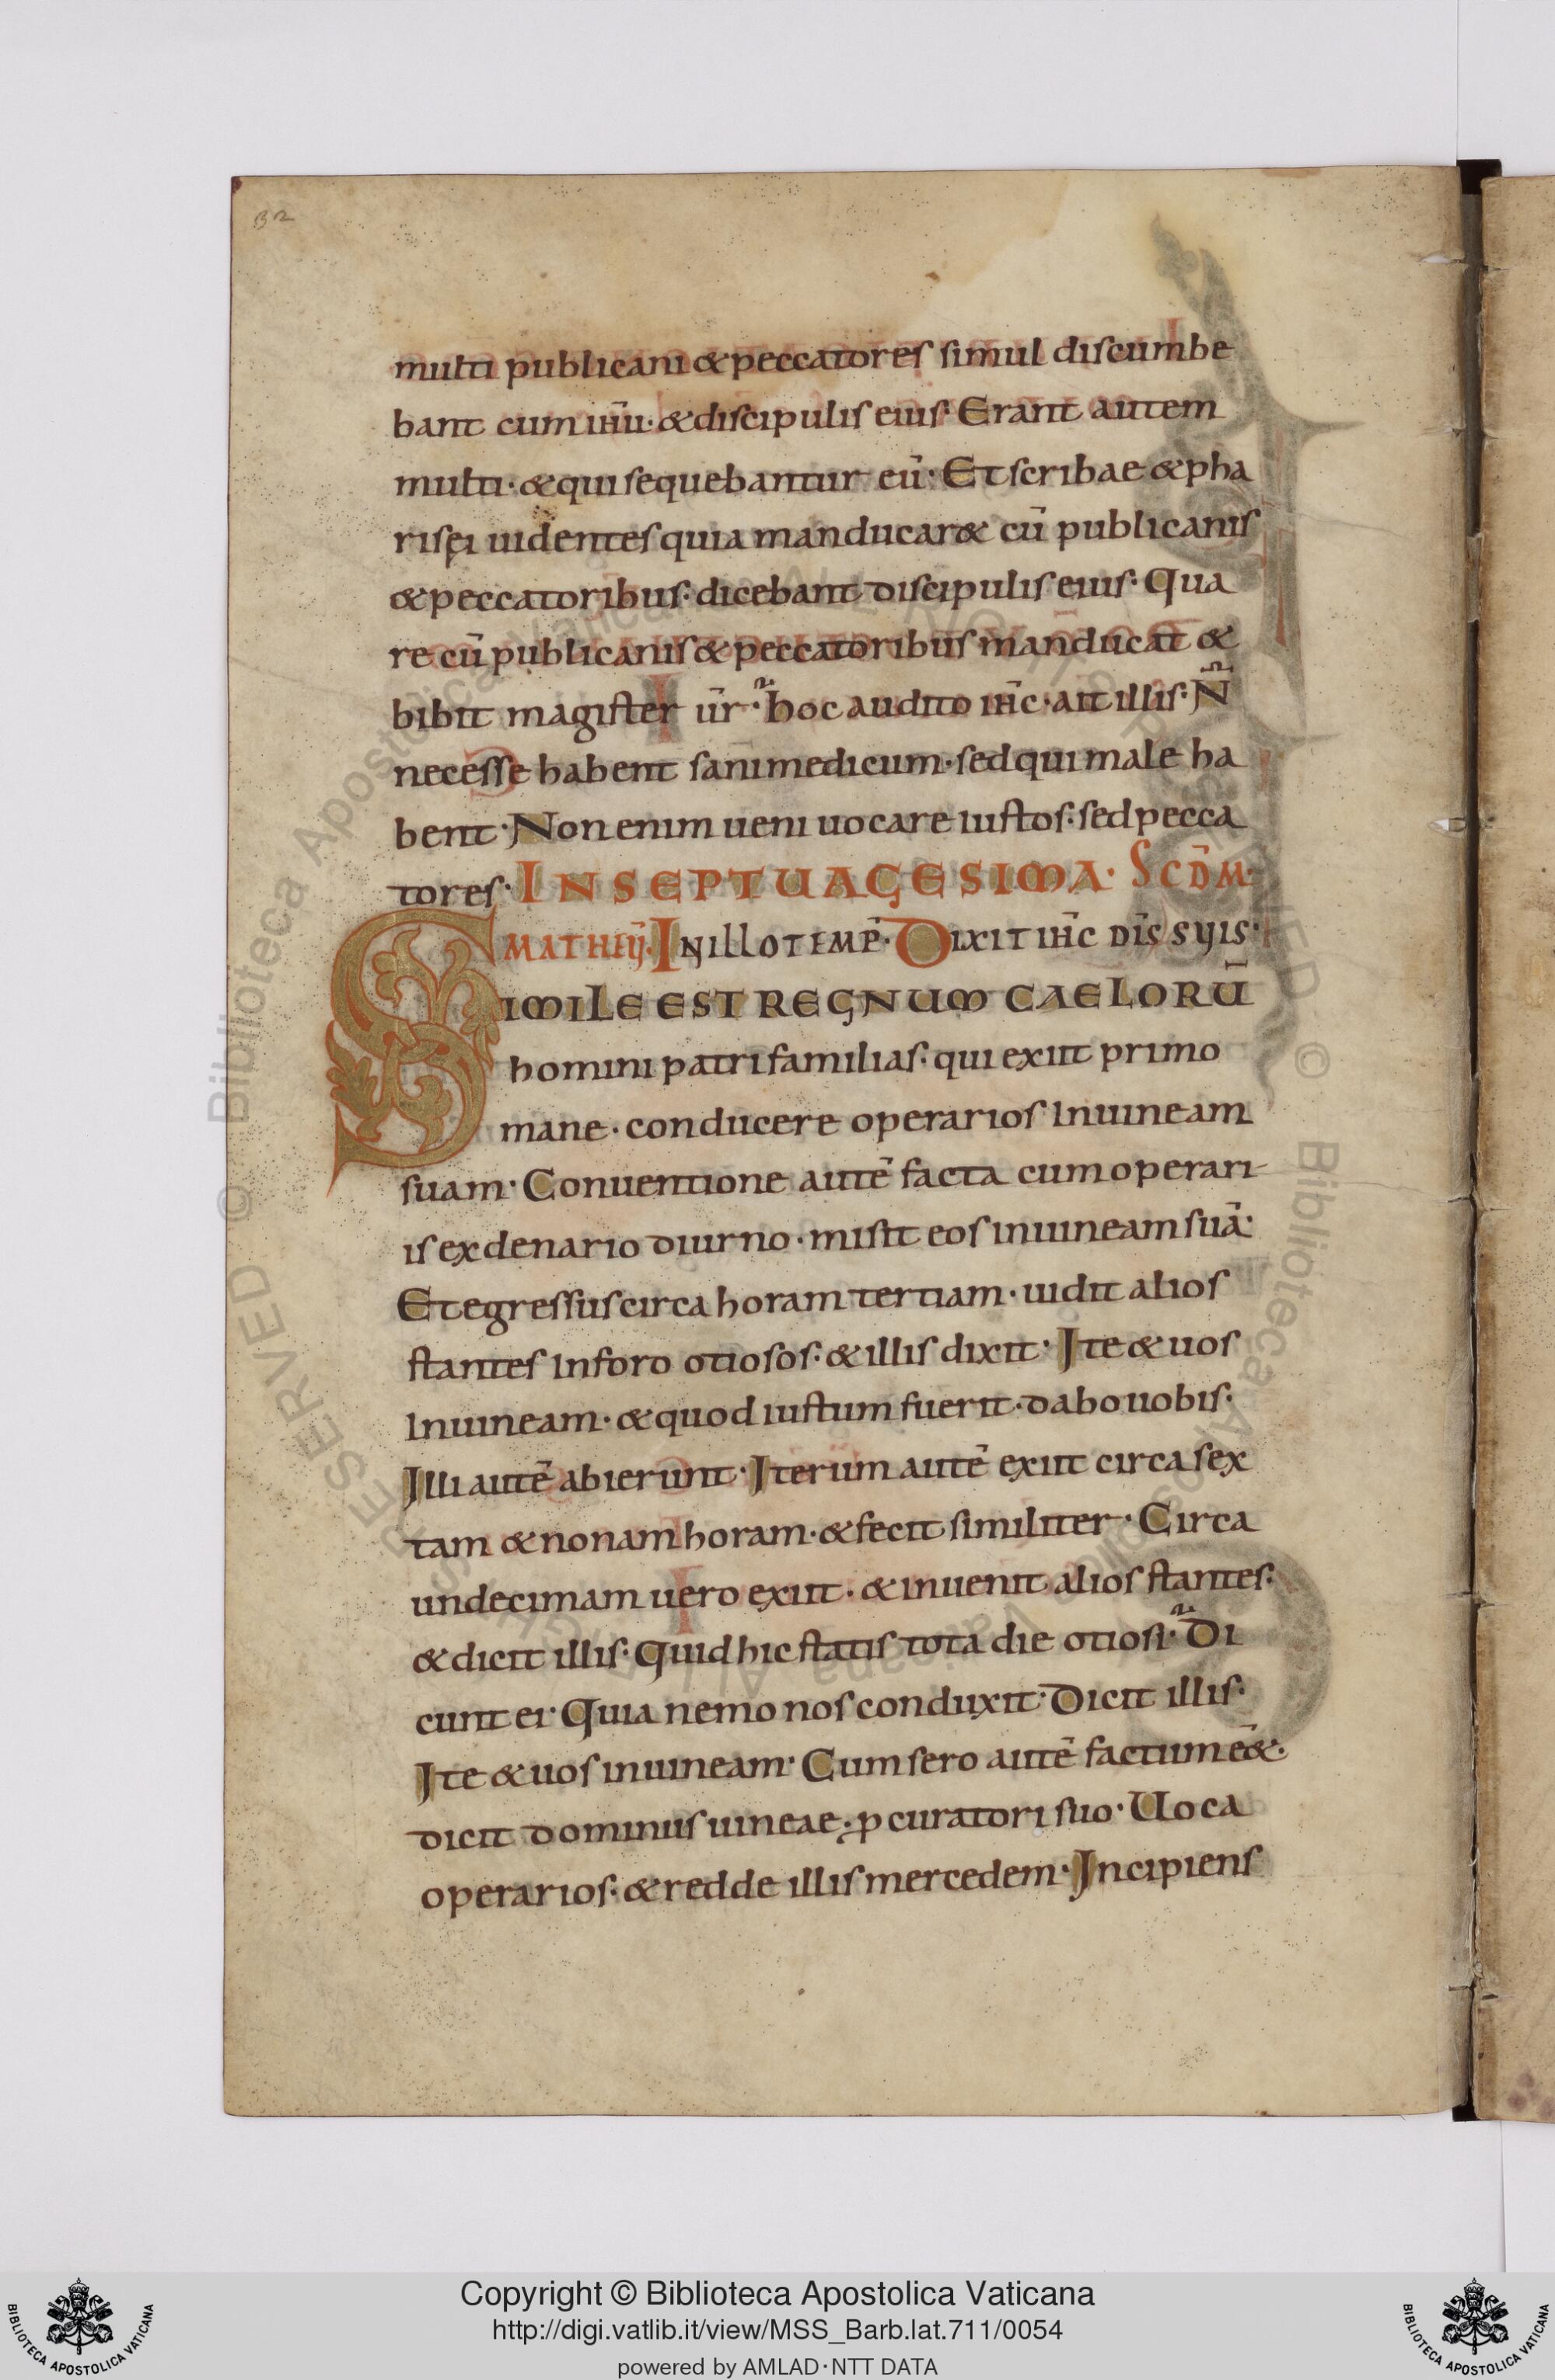 32
multi publicani & peccatores simul discumbe
bant cum ihū· & discipulis eius· Erant autem
multi· & qui sequebantur eū· Et scribae & pha
risęi uidentes quia manducar& cū publicanis
& peccatoribus· dicebant discipulis eius· Qua
re cū publicanis & peccatoribus manducat &
bibit magister ūr· hoc audito ihc̄· ait illis· N̄
necesse habent sani medicum· sed qui male ha
bent· Non enim ueni uocare iustos· sed pecca
tores· IN SEPTUAGESIMA· SCD̄M·
MATHEŪ· IN ILLO TEMP̄· DIXIT IHC̄ DIS̄ SUIS·
SIMILE EST REGNUM CAELORŪ
homini patri familias· qui exiit primo
mane· conducere operarios in uineam
suam· Conuentione autē facta cum operari
is ex denario diurno· misit eos in uineam suā·
Et egressus circa horam tertiam· uidit alios
stantes in foro otiosos· & illis dixit· Ite & uos
in uineam· & quod iustum fuerit· dabo uobis·
Illi autē abierunt· Iterum autē exiit circa sex
tam & nonam horam· & fecit similiter· Circa
undecimam uero exiit· & inuenit alios stantes·
& dicit illis· Quid hic statis tota die otiosi· Di
cunt ei· Quia nemo nos conduxit· Dicit illis·
Ite & uos in uineam· Cum sero autē factum eē&·
dicit dominus uineae· ꝓcuratori suo· Uoca
operarios· & redde illis mercedem· Incipiens
Copyright © Biblioteca Apostolica Vaticana
http://digi.vatlib.it/view/MSS_Barb.lat.711/0054
powered by AMLAD·NTT DATA
BIBLIOTECA APOSTOLICA VATICANA
BIBLIOTECA APOSTOLICA VATICANA